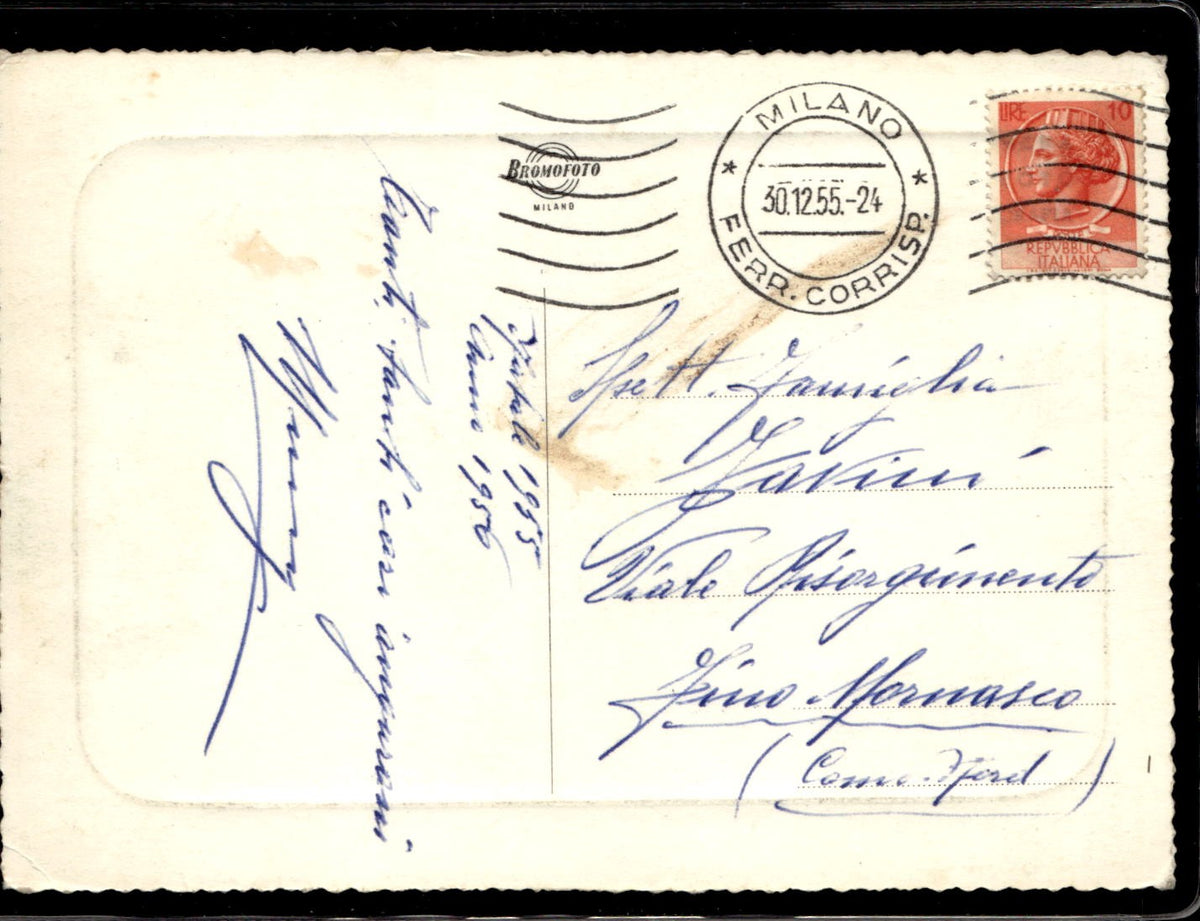 BROMOFOTO
MILANO
MILANO
30.12.55.-24
FERR. CORRISP.
LIRE 10
REPVBBLICA
ITALIANA
Natale 1955
Anno 1956
Tanti, tanti cari auguroni
Spett. Famiglia
Viale Risorgimento
Fino Mornasco
(Como-Nord)